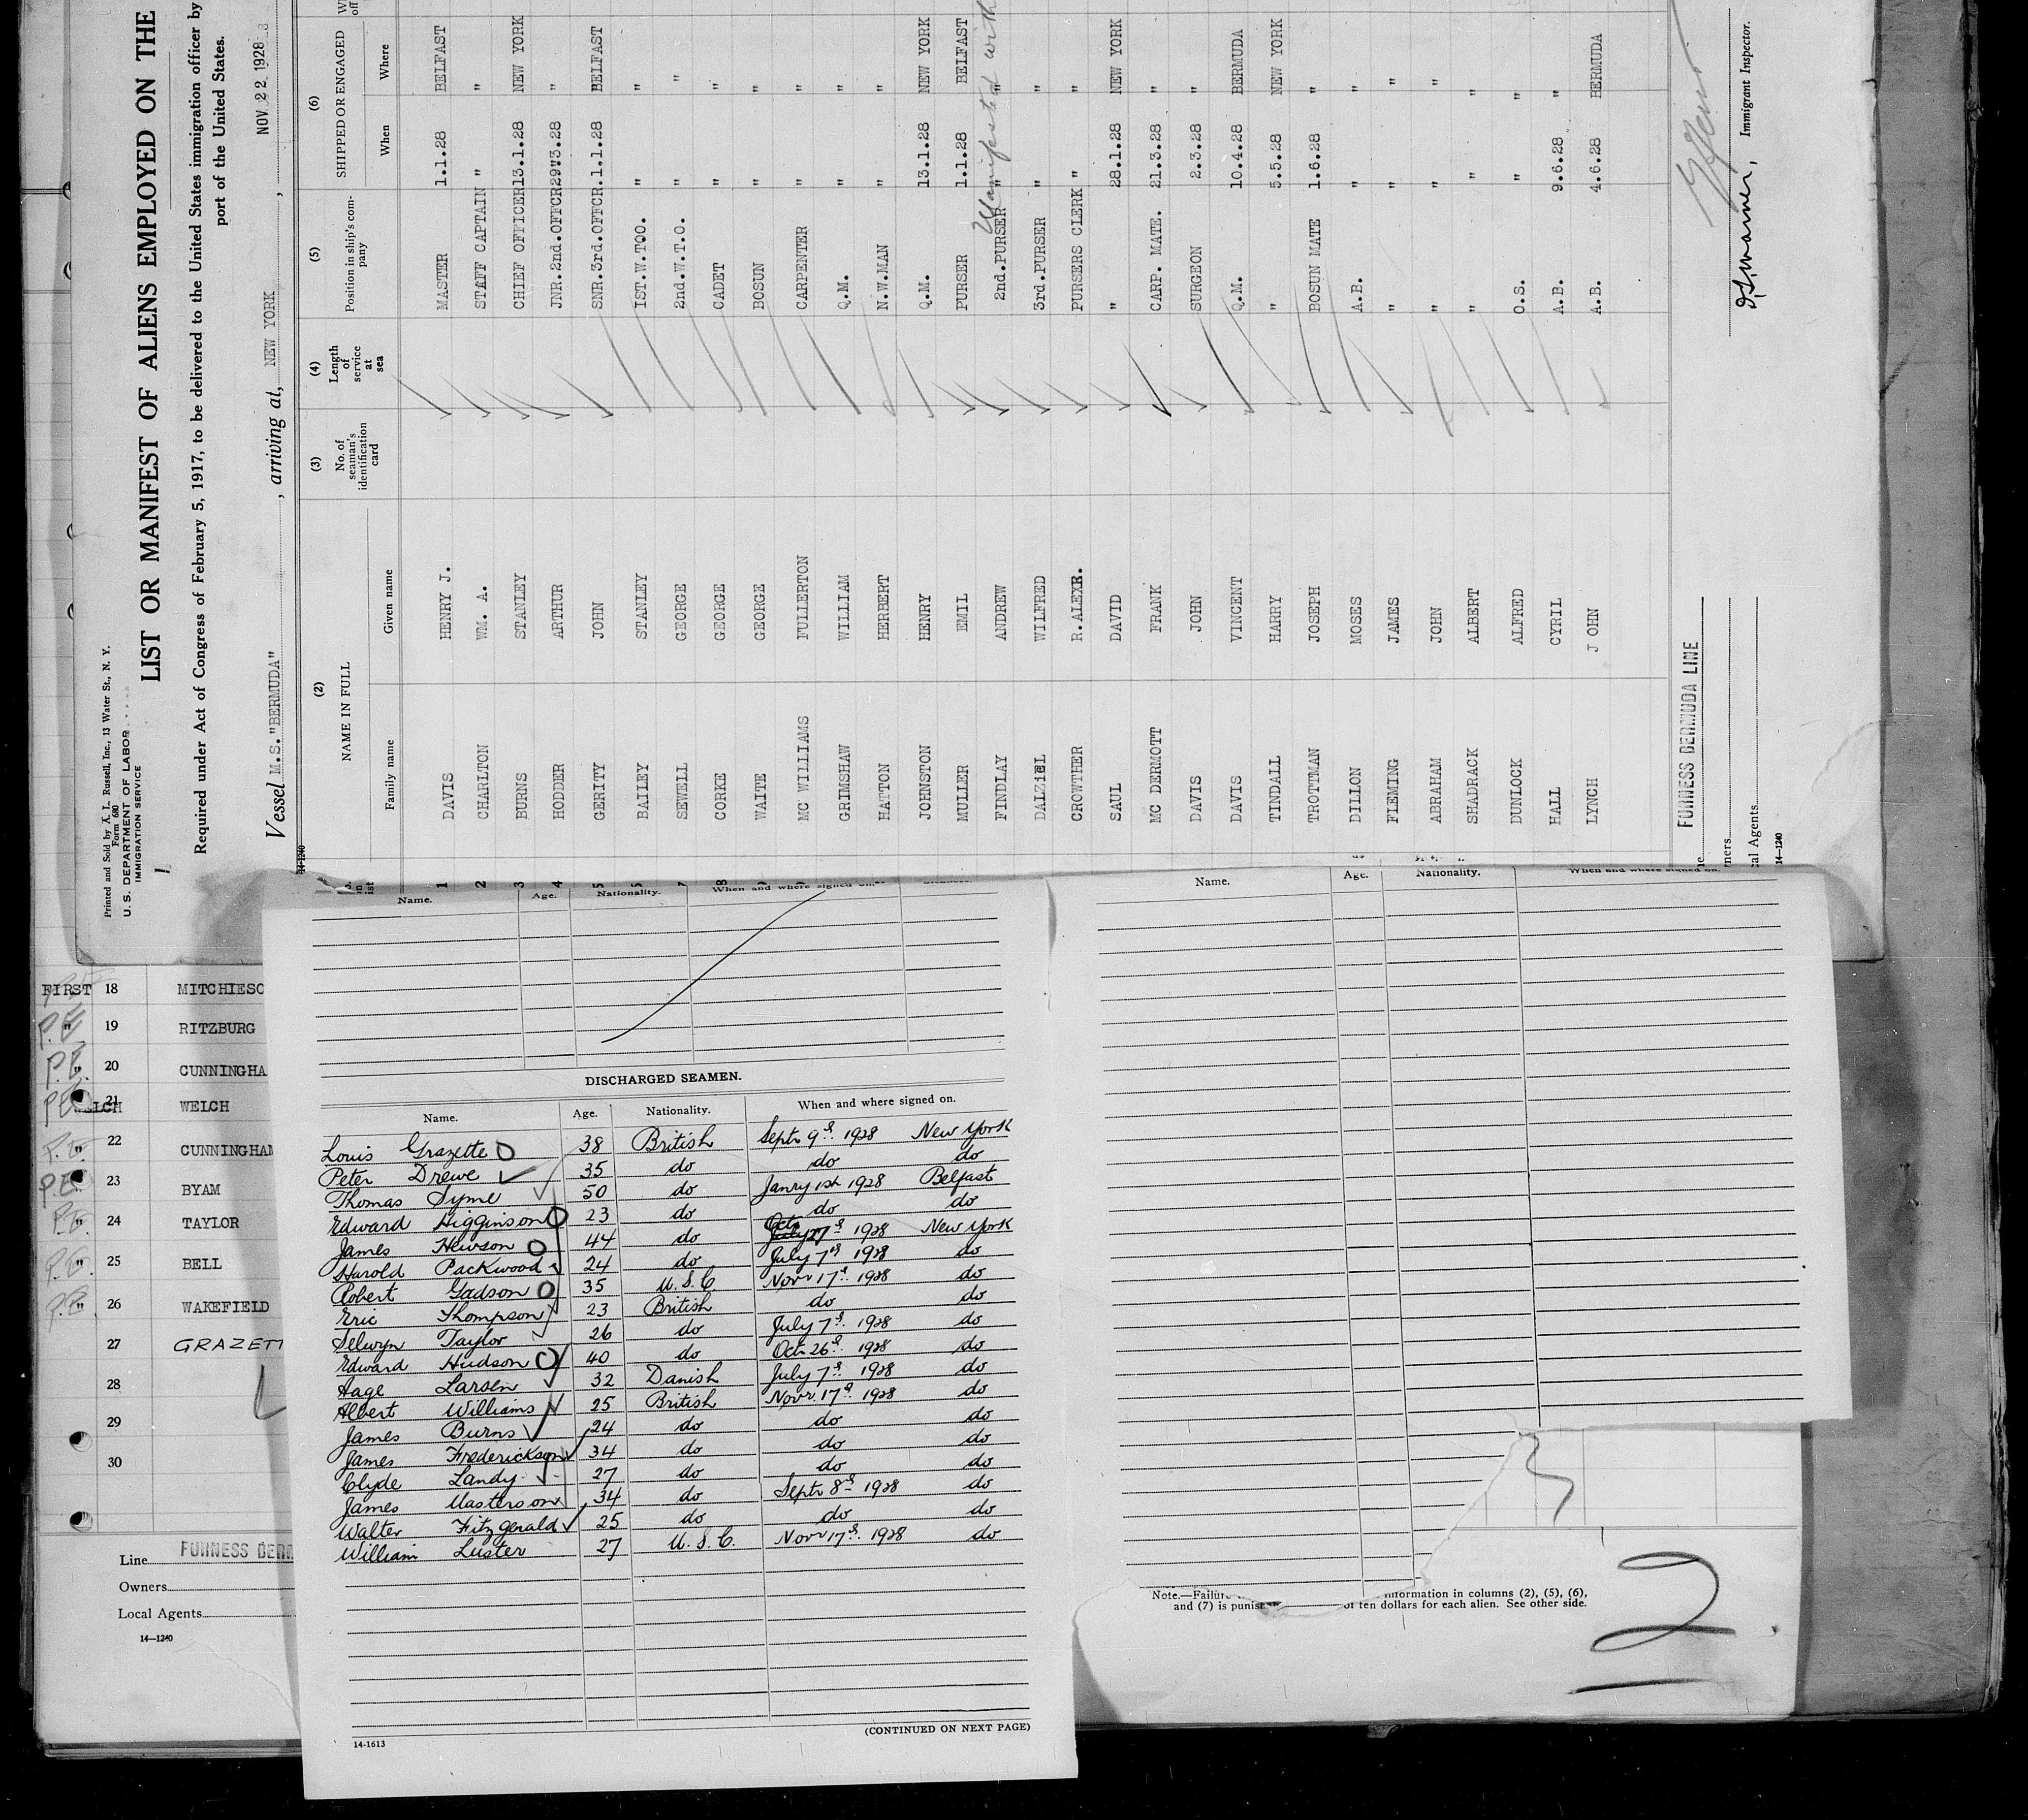 Printed and Sold by A. L. Russell, Inc., 13 Water St., N. Y.
Form 680
U. S. DEPARTMENT OF LABOR
IMMIGRATION SERVICE
LIST OR MANIFEST OF ALIENS EMPLOYED ON THE
Required under Act of Congress of February 5, 1917, to be delivered to the United States immigration officer by
port of the United States.
Vessel M.S."BERMUDA", arriving at, NEW YORK, NOV 22 1928
14-1240
(2) (3) (4) (5) (6)
NAME IN FULL No. of seaman's identification card Length of service at sea Position in ship's company SHIPPED OR ENGAGED
Family name Given name When Where
1 DAVIS HENRY J. MASTER 1.1.28 BELFAST
2 CHARLTON WM. A. STAFF CAPTAIN " "
3 BURNS STANLEY CHIEF OFFICER 13.1.28 NEW YORK
4 HODDER ARTHUR JNR.2nd.OFFCR 29.3.28 "
5 GERITY JOHN SNR.3rd.OFFCR. 1.1.28 BELFAST
BAILEY STANLEY IST.W.T.O. " "
SEWELL GEORGE 2nd.W.T.O. " "
8 CORKE GEORGE CADET " "
WAITE GEORGE BOSUN " "
MC WILLIAMS FULLERTON CARPENTER " "
GRIMSHAW WILLIAM Q.M. " "
HATTON HERBERT N.W.MAN " "
JOHNSTON HENRY Q.M. 13.1.28 NEW YORK
MULLER EMIL PURSER 1.1.28 BELFAST
FINDLAY ANDREW 2nd.PURSER " "
Manifested with
DALZIEL WILFRED 3rd.PURSER " "
CROWTHER R.ALEXR. PURSERS CLERK " "
SAUL DAVID " 28.1.28 NEW YORK
MC DERMOTT FRANK CARP. MATE. 21.3.28 "
DAVIS JOHN SURGEON 2.3.28 "
DAVIS VINCENT Q.M. 10.4.28 BERMUDA
TINDALL HARRY " 5.5.28 NEW YORK
TROTTMAN JOSEPH BOSUN MATE 1.6.28 "
DILLON MOSES A.B. " "
FLEMING JAMES " " "
ABRAHAM JOHN " " "
SHADRACK ALBERT " " "
DUNLOCK ALFRED O.S. " "
HALL CYRIL A.B. 9.6.28 "
LYNCH JOHN A.B. 4.6.28 BERMUDA
FURNESS BERMUDA LINE
Immigrant Inspector.
14-1240
FIRST 18 MITCHIESO
P.E. 19 RITZBURG
P.E. 20 CUNNINGHA
P.E. 21 WELCH
P.E. 22 CUNNINGHAM
P.E. 23 BYAM
P.E. 24 TAYLOR
P.E. 25 BELL
P.E. 26 WAKEFIELD
27 GRAZETT
28
29
30
Line FURNESS BERM
Owners
Local Agents
14—1240
Name. Age. Nationality. When and where signed on.
DISCHARGED SEAMEN.
Name. Age. Nationality. When and where signed on.
Louis Grazette 38 British Septr 9th 1928 New York
Peter Drewe 35 do do do
Thomas Syme 50 do Janry 1st 1928 Belfast
Edward Higginson 23 do do do
James Hewson 44 do Oct 27th 1928 New York
Harold Packwood 24 do July 7th 1928 do
Robert Gadson 35 U.S.C. Novr 17th 1928 do
Eric Thompson 23 British do do
Selwyn Taylor 26 do July 7th 1928 do
Edward Hudson 40 do Oct 26th 1928 do
Aage Larsen 32 Danish July 7th 1928 do
Albert Williams 25 British Novr 17th 1928 do
James Burns 24 do do do
James Frederickson 34 do do do
Clyde Landy 27 do do do
James Masterson 34 do Septr 8th 1928 do
Walter Fitzgerald 25 do do do
William Luster 27 U.S.C. Novr 17th 1928 do
(CONTINUED ON NEXT PAGE)
14-1613
Name. Age. Nationality. When and where signed on.
Note.—Failure information in columns (2), (5), (6),
and (7) is punish of ten dollars for each alien. See other side.
2